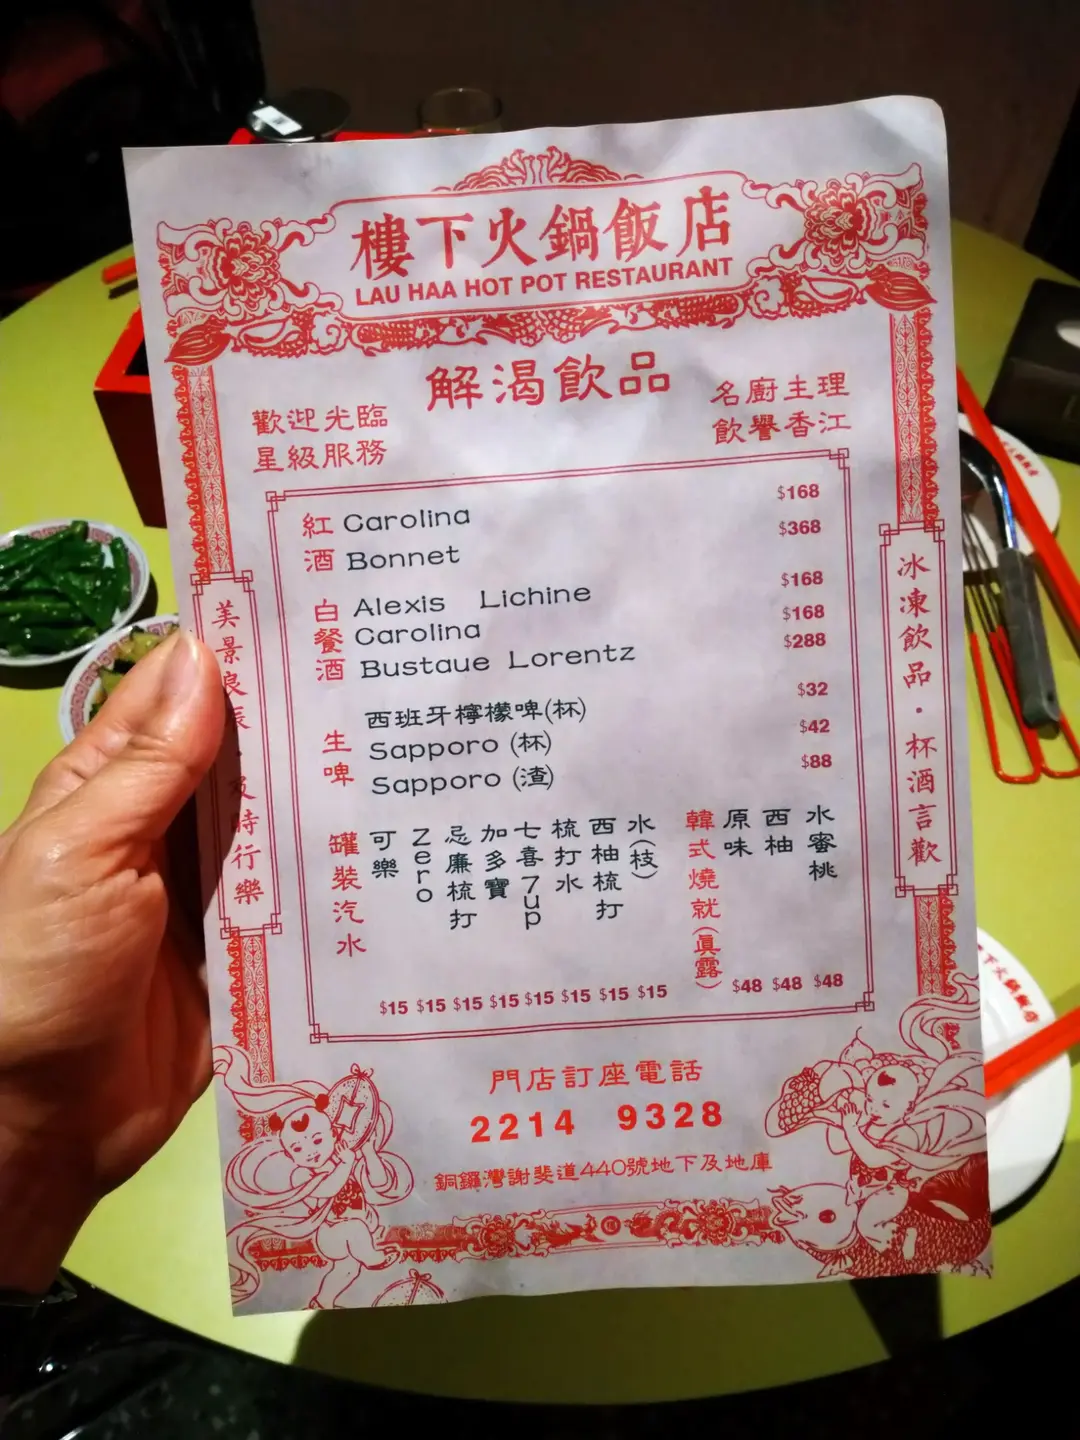 樓下火鍋飯店
LAU HAA HOT POT RESTAURANT
解渴飲品
歡迎光臨
星級服務
名廚主理
飲譽香江
紅酒
Carolina $168
Bonnet $368
白餐酒
Alexis Lichine $168
Carolina $168
Bustaue Lorentz $288
生啤
西班牙檸檬啤(杯) $32
Sapporo (杯) $42
Sapporo (渣) $88
罐裝汽水
可樂 $15
Zero $15
忌廉梳打 $15
加多寶 $15
七喜7up $15
梳打水 $15
西柚梳打 $15
水(枝) $15
韓式燒就(眞露)
原味 $48
西柚 $48
水蜜桃 $48
美景良辰·及時行樂
冰凍飲品·杯酒言歡
門店訂座電話
2214 9328
銅鑼灣謝斐道440號地下及地庫